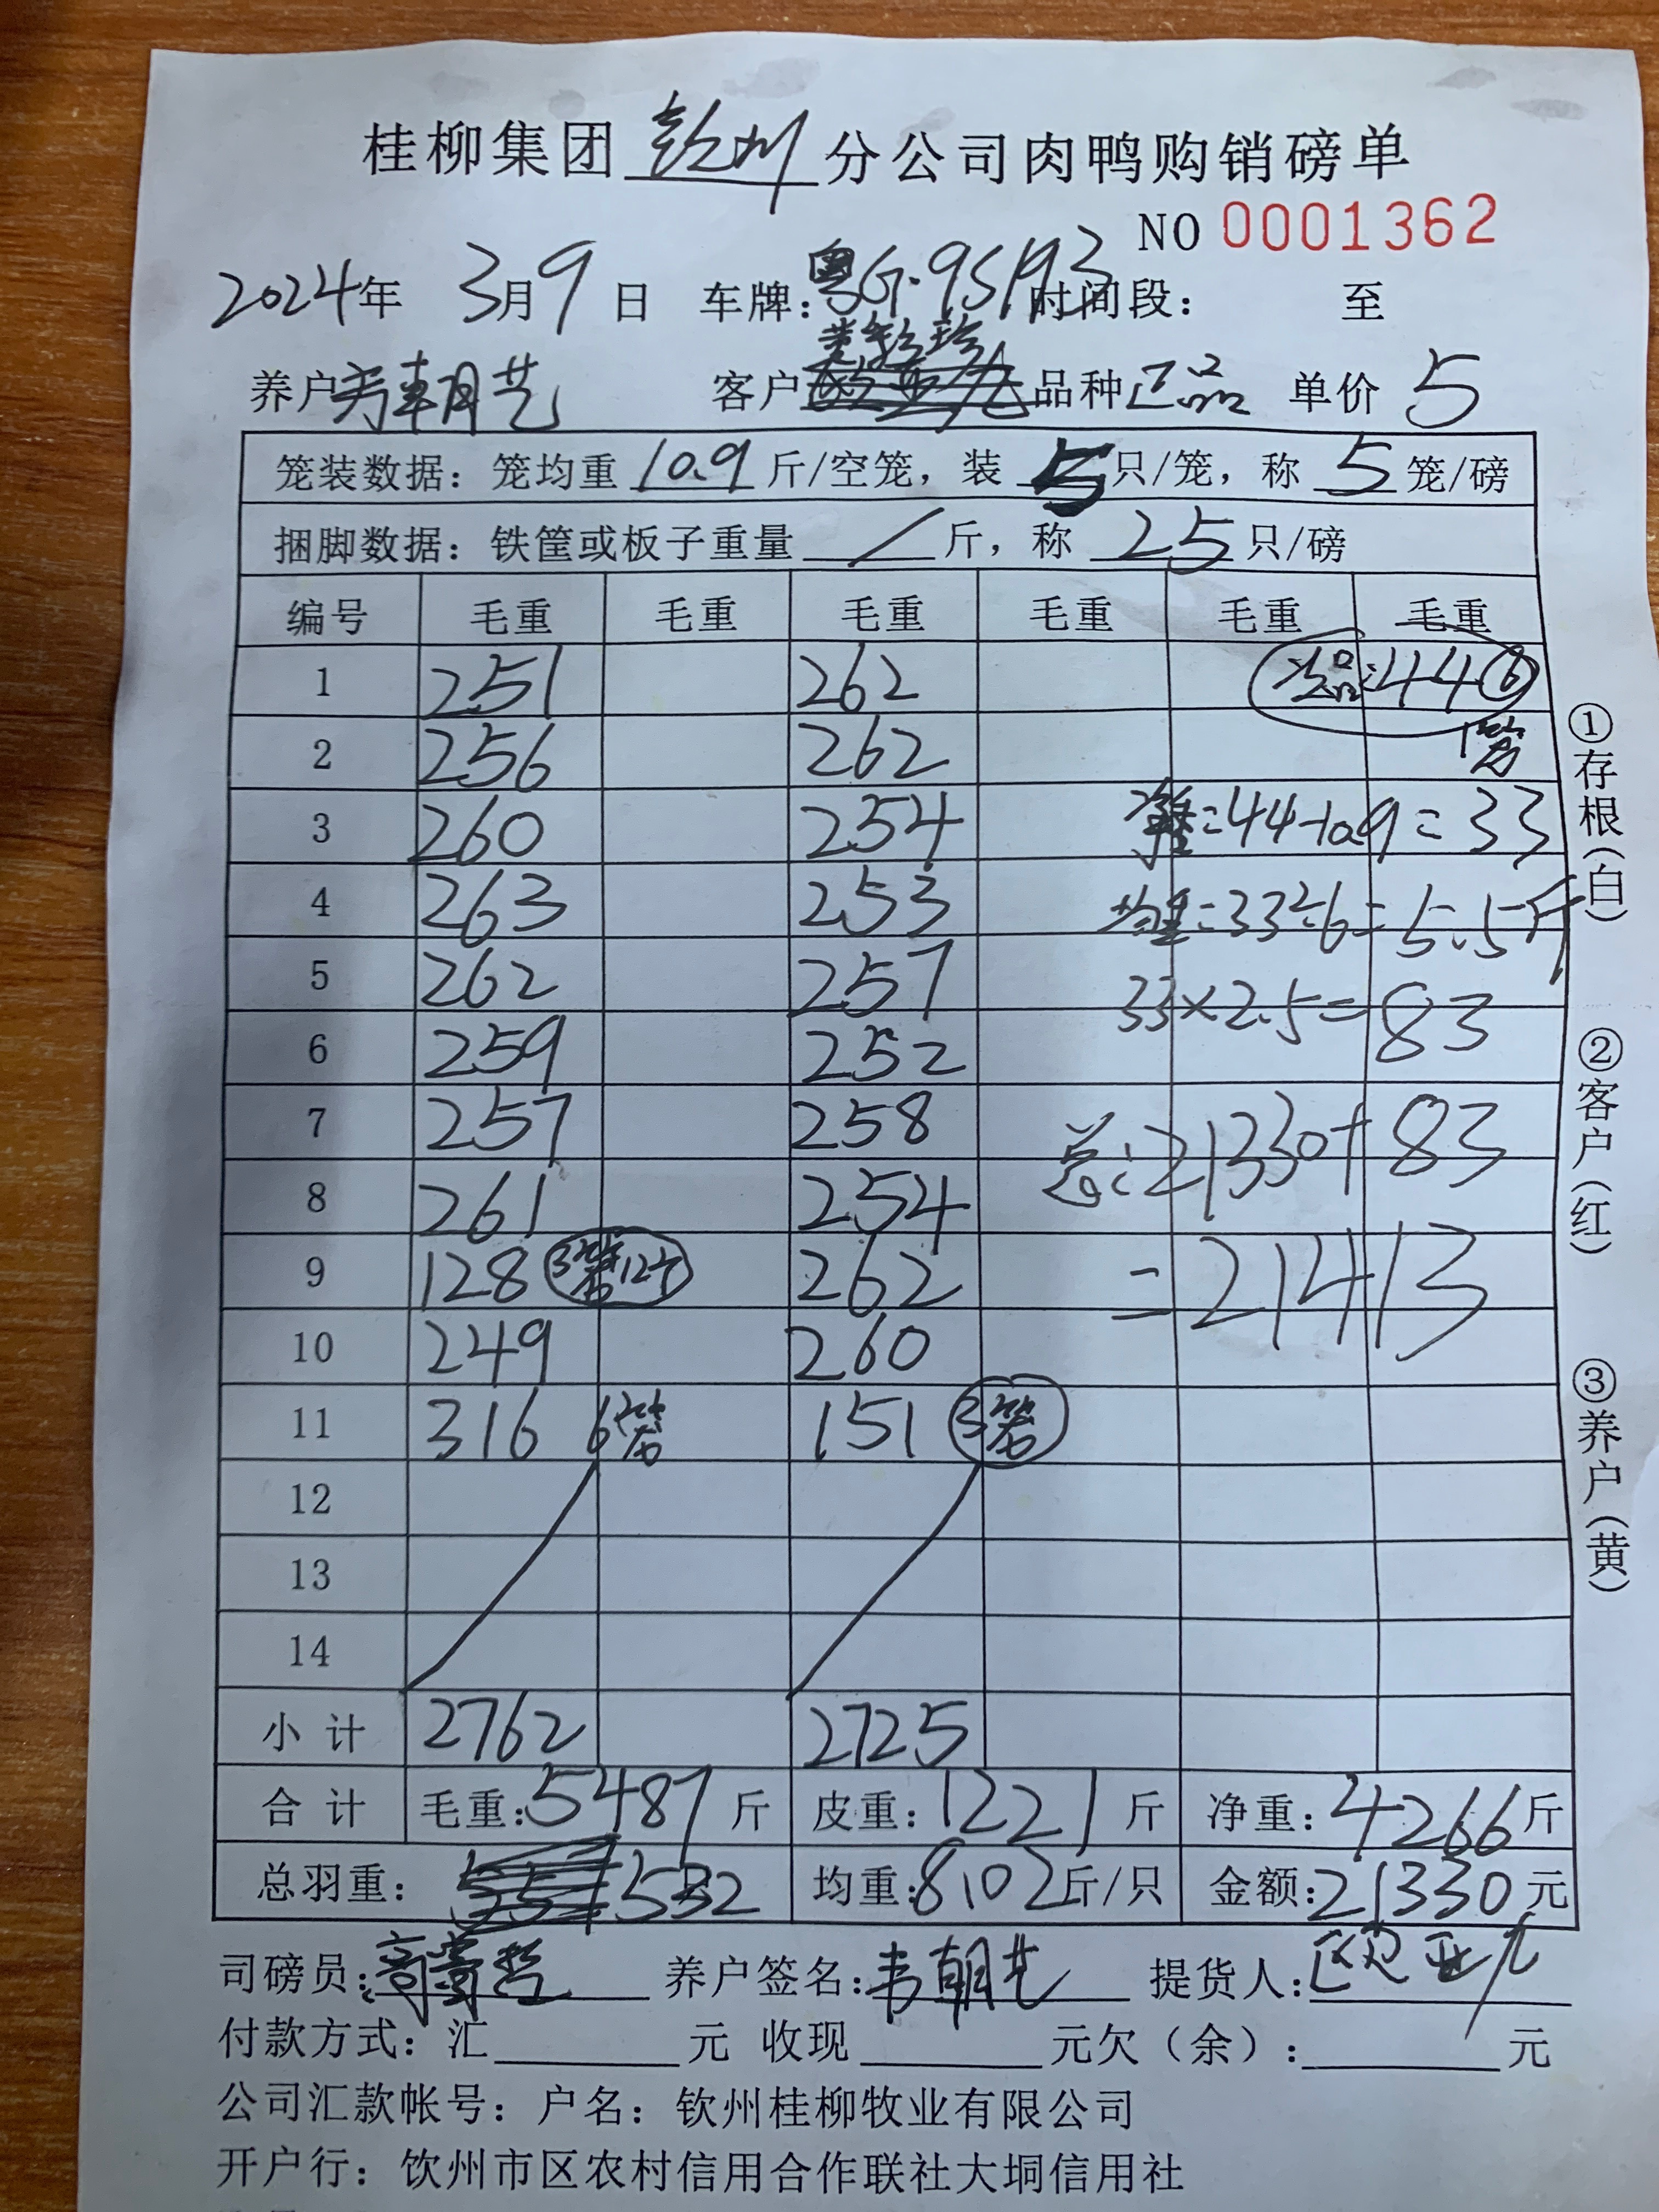 桂柳集团 钦州 分公司肉鸭购销磅单
NO 0001362
2024年 3月9日 车牌:粤G·95193 时间段: 至
养户 韦朝艺 客户 品种 正品 单价 5
笼装数据:笼均重 10.9 斤/空笼,装 5 只/笼,称 5 笼/磅
捆脚数据:铁筐或板子重量 / 斤,称 25 只/磅
编号 毛重 毛重 毛重 毛重 毛重 毛重
1 251 262 次品:44⑥
2 256 262 1笼
3 260 254 净重=44-10.9=33
4 263 253 均重=33÷6=5.5斤
5 262 257 33×2.5=83
6 259 252
7 257 258 总:21330+83
8 261 254
9 128 3笼12只 262 =21413
10 249 260
11 316 6笼 151 3笼
12
13
14
小计 2762 2725
合计 毛重:5487斤 皮重:1221斤 净重:4266斤
总羽重: 532 均重:8.02斤/只 金额:21330元
司磅员: 养户签名:韦朝艺 提货人:区亚九
付款方式:汇 元 收现 元欠(余): 元
公司汇款帐号:户名:钦州桂柳牧业有限公司
开户行:钦州市区农村信用合作联社大垌信用社
①存根(白)
②客户(红)
③养户(黄)